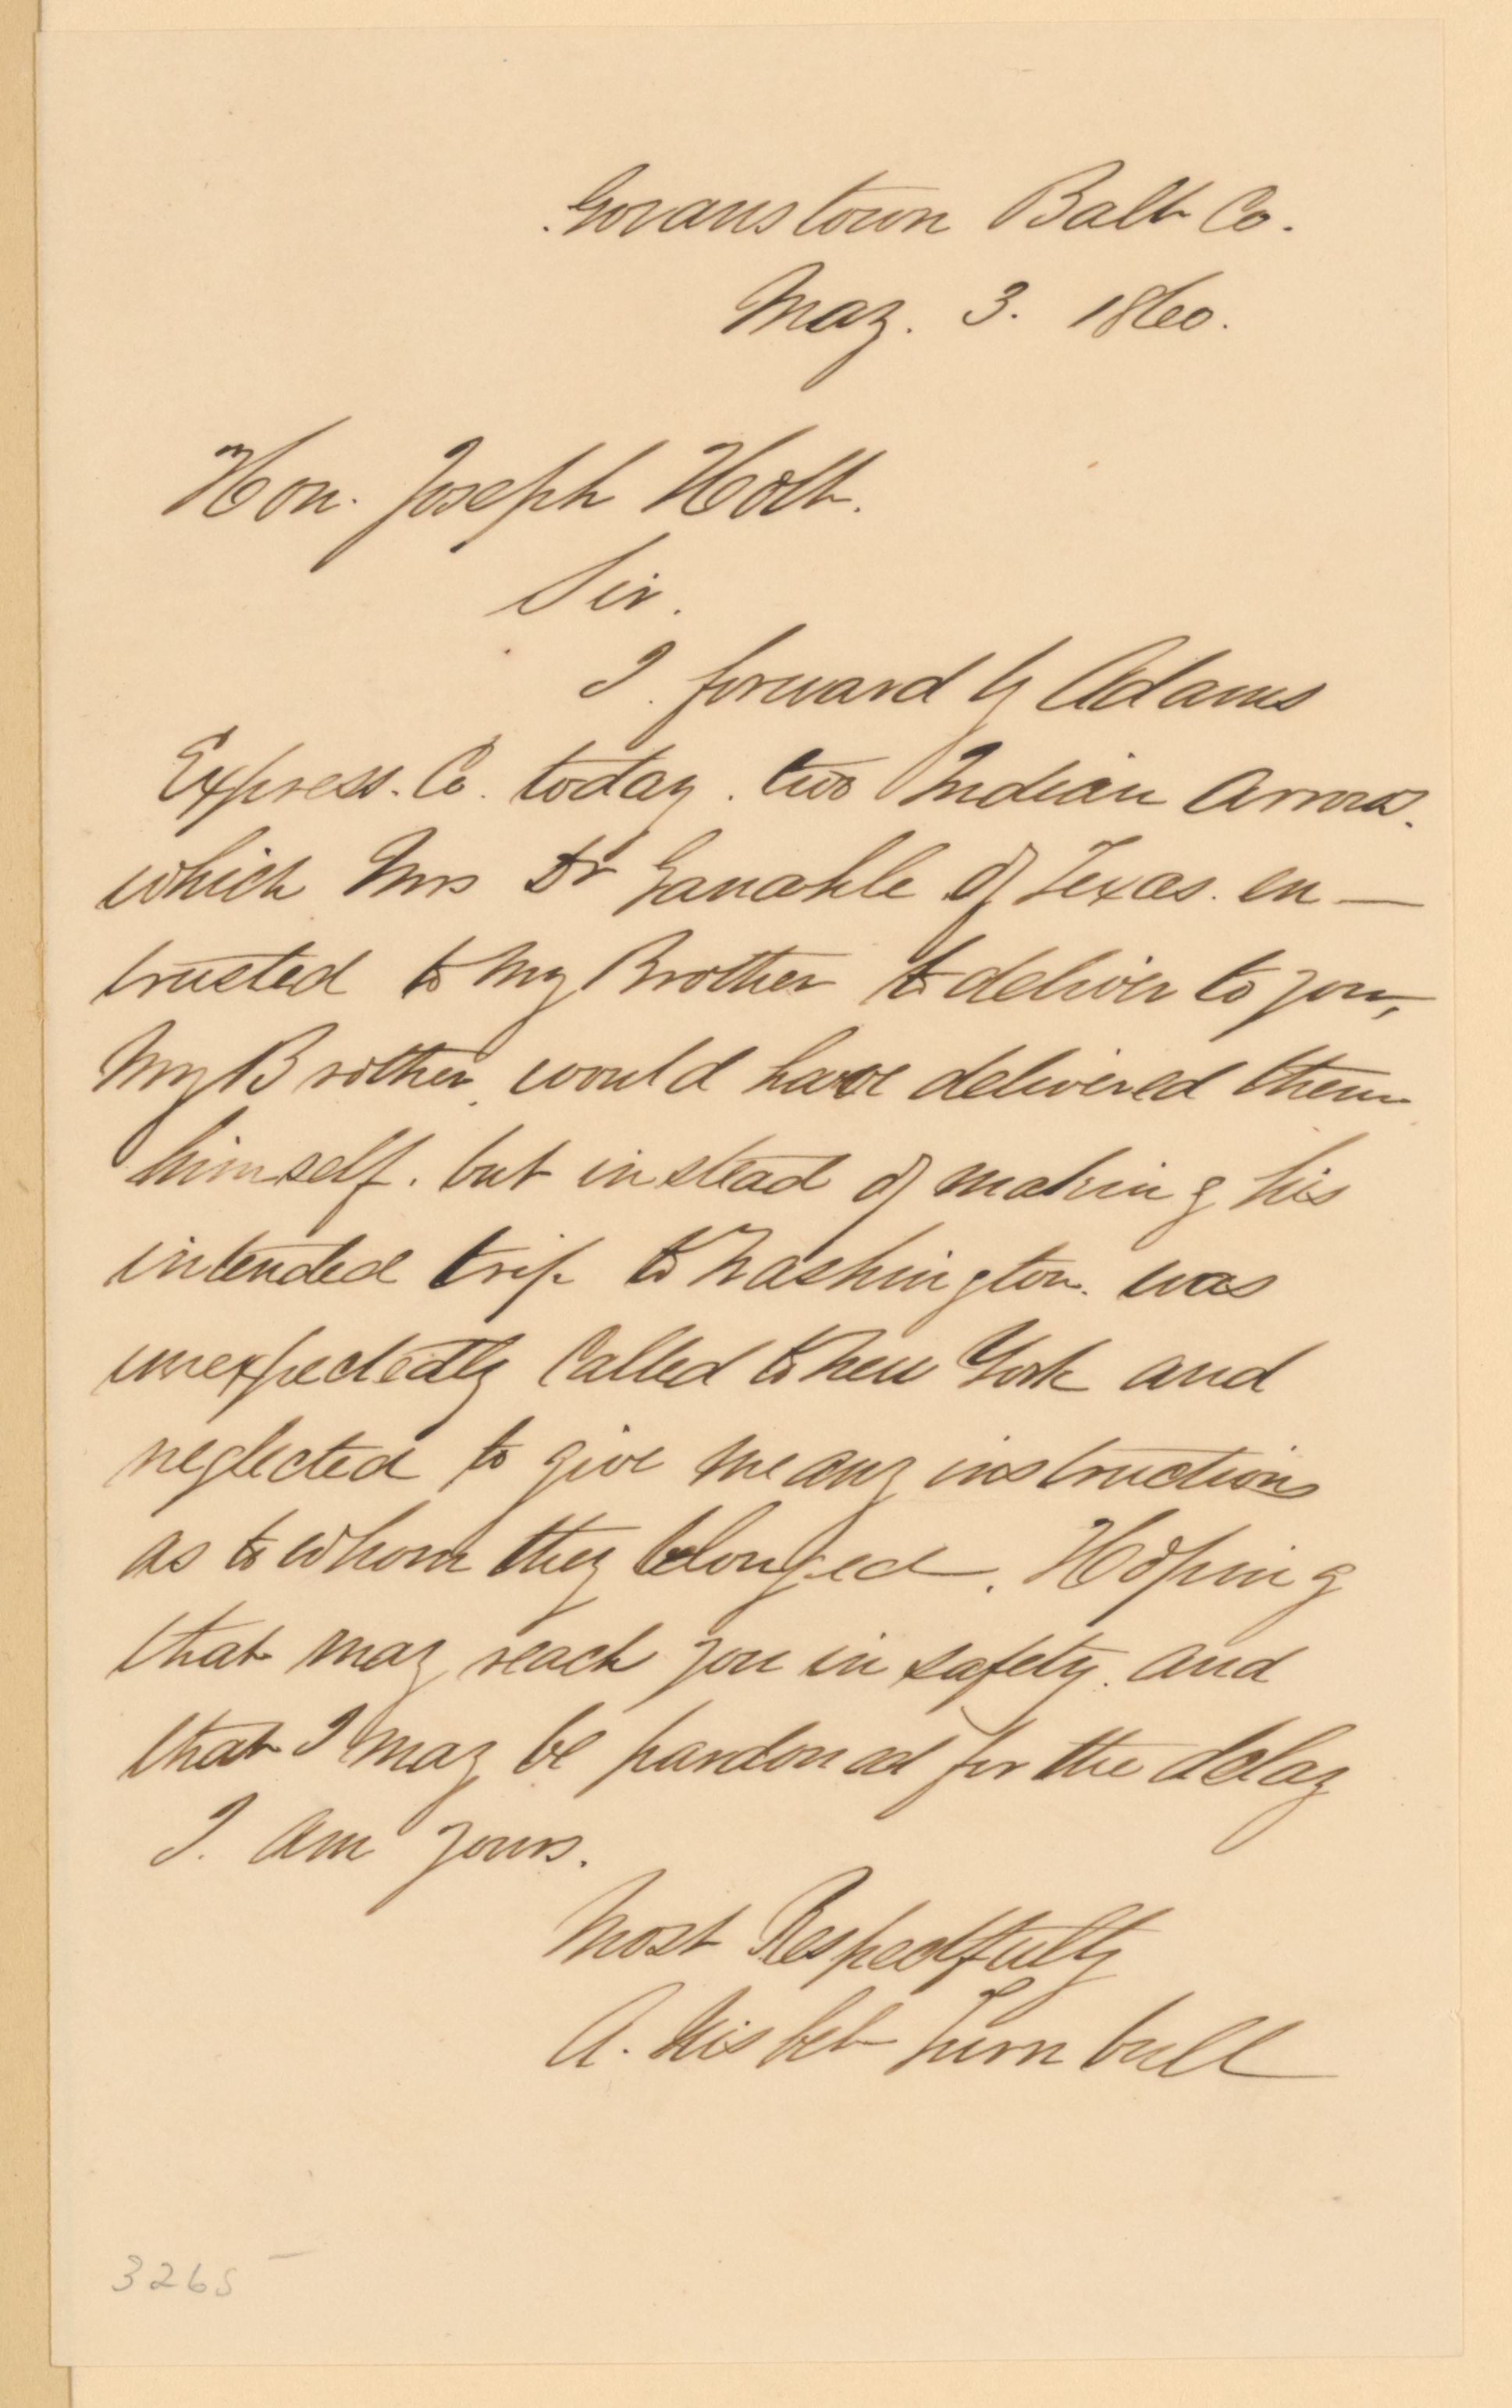 Govanstown Balt Co.
May. 3. 1860.
Hon. Joseph Holt.
Sir.
I. forward by Adams
Express. Co. today. two Indian Arrows.
which Mrs Dr Ganahle of Texas. en—
trusted to my Brother to deliver to you,
My Brother would have delivered them
himself. but instead of making his
intended trip to Washington. was
unexpectedly Called to New York and
neglected to give me any instructions
as to whom they belonged. Hoping
that may reach you in safety. and
that I may be pardoned for the delay
I. am yours.
Most Respectfully
A. Nisbet Turnbull
3265